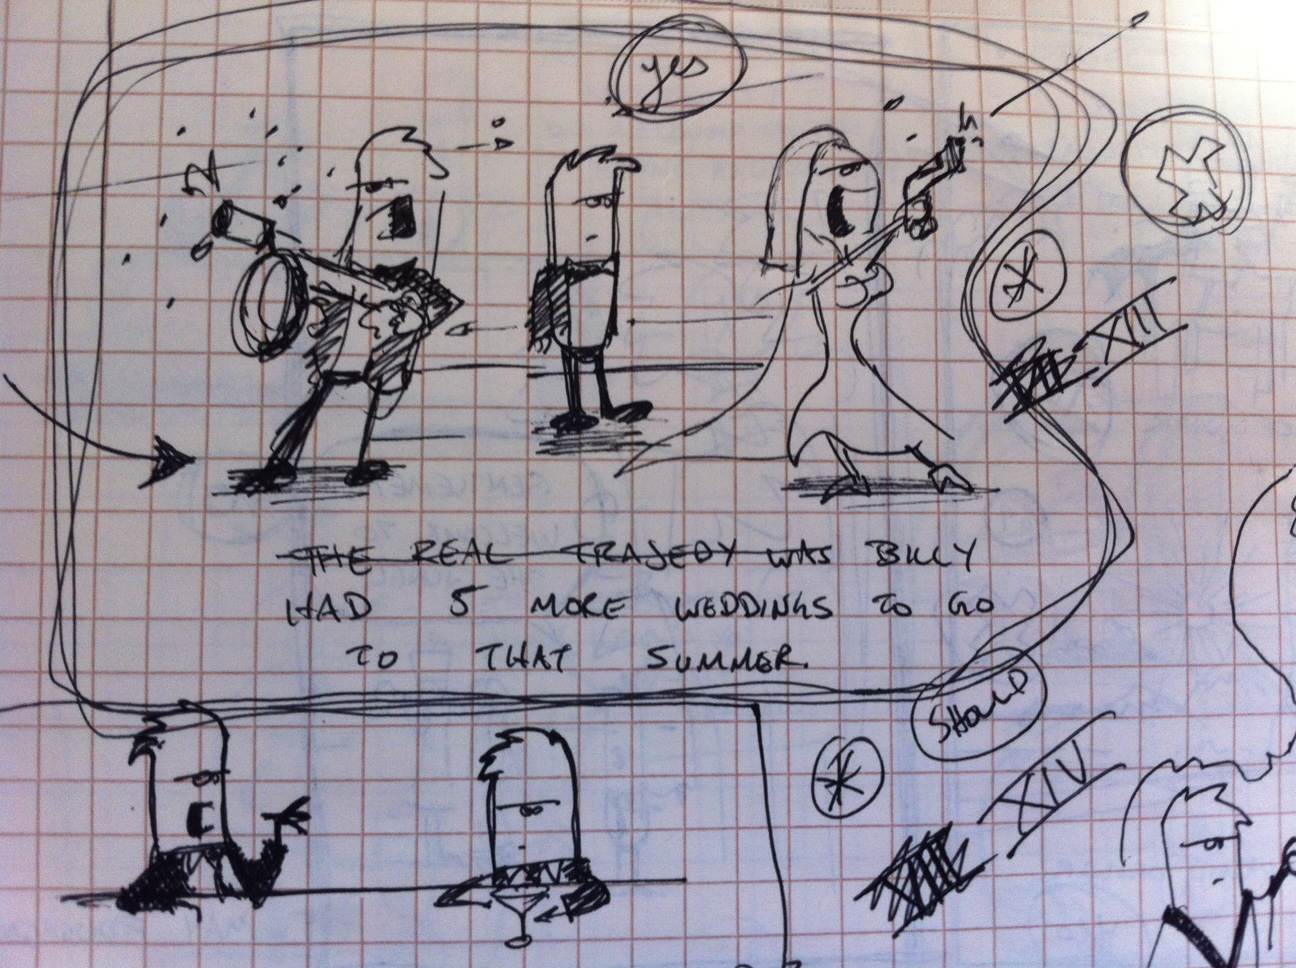 yes
XIII
THE REAL TRAJEDY WAS BILLY
HAD 5 MORE WEDDINGS TO GO
TO THAT SUMMER.
SHOULD
XIV